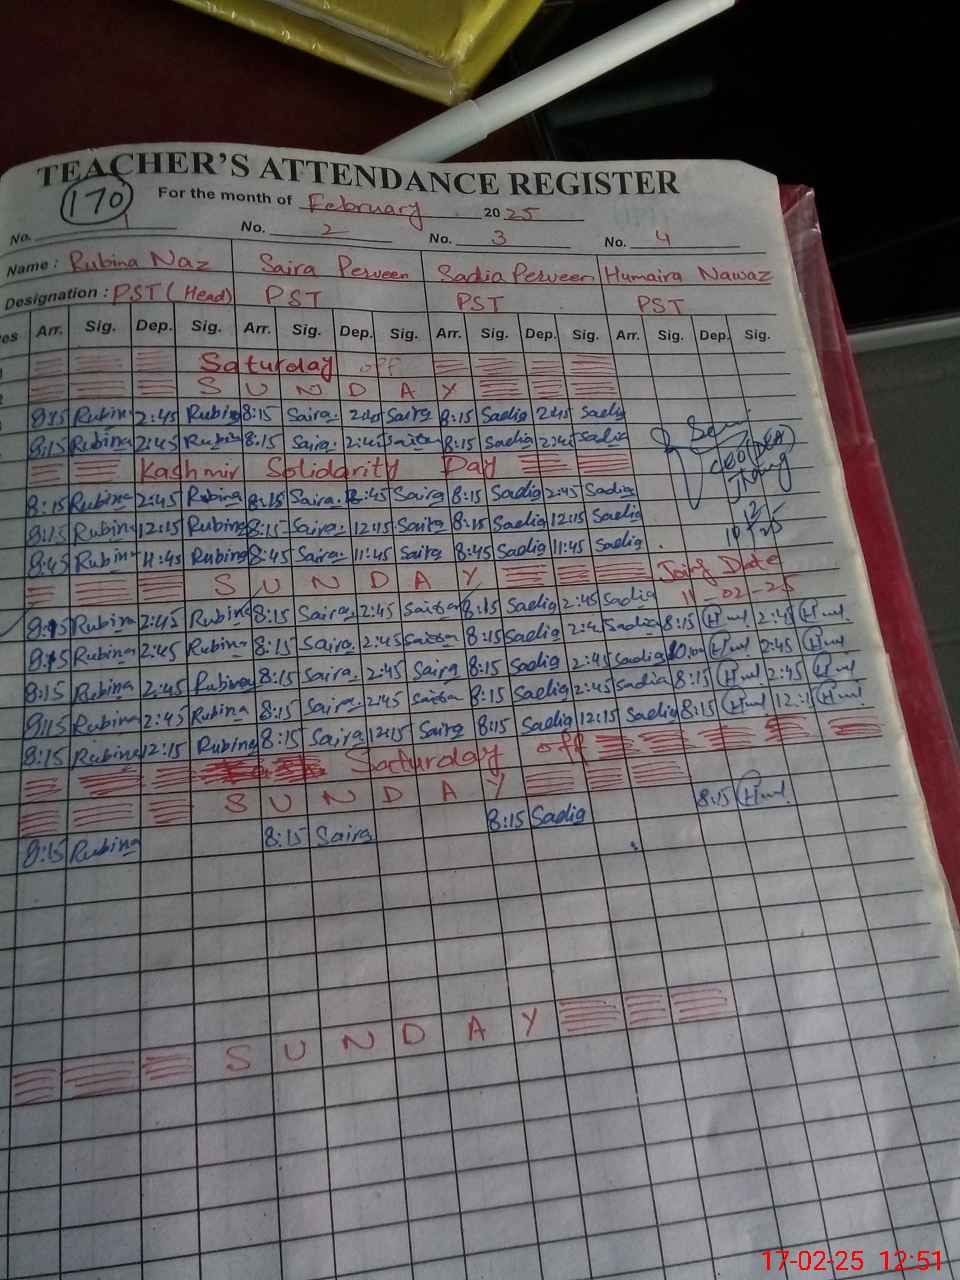 TEACHER'S ATTENDANCE REGISTER
170 For the month of February 2025
No. 1 No. 2 No. 3 No. 4
Name : Rubina Naz Saira Perveen Sadia Perveen Humaira Nawaz
Designation : PST (Head) PST PST PST
es Arr. Sig. Dep. Sig. Arr. Sig. Dep. Sig. Arr. Sig. Dep. Sig. Arr. Sig. Dep. Sig.
Saturday off
S U N D A Y
8:15 Rubina 2:45 Rubina 8:15 Saira 2:45 Saira 8:15 Sadia 2:45 Sadia
8:15 Rubina 2:45 Rubina 8:15 Saira 2:45 Saira 8:15 Sadia 2:45 Sadia
Kashmir Solidarity Day
8:15 Rubina 2:45 Rubina 8:15 Saira 2:45 Saira 8:15 Sadia 2:45 Sadia
8:15 Rubina 12:15 Rubina 8:15 Saira 12:15 Saira 8:15 Sadia 12:15 Sadia
8:45 Rubina 11:45 Rubina 8:45 Saira 11:45 Saira 8:45 Sadia 11:45 Sadia
S U N D A Y
8:15 Rubina 2:45 Rubina 8:15 Saira 2:45 Saira 8:15 Sadia 2:45 Sadia
8:15 Rubina 2:45 Rubina 8:15 Saira 2:45 Saira 8:15 Sadia 2:45 Sadia 8:15 2:45
8:15 Rubina 2:45 Rubina 8:15 Saira 2:45 Saira 8:15 Sadia 2:45 Sadia 10:00 2:45
8:15 Rubina 2:45 Rubina 8:15 Saira 2:45 Saira 8:15 Sadia 2:45 Sadia 8:15 2:45
8:15 Rubina 12:15 Rubina 8:15 Saira 12:15 Saira 8:15 Sadia 12:15 Sadia 8:15
Saturday off
S U N D A Y
8:15 Rubina 8:15 Saira 8:15 Sadia 8:15
S U N D A Y
CEO (DEA)
Jhang
Date
11-02-25
17-02-25 12:51